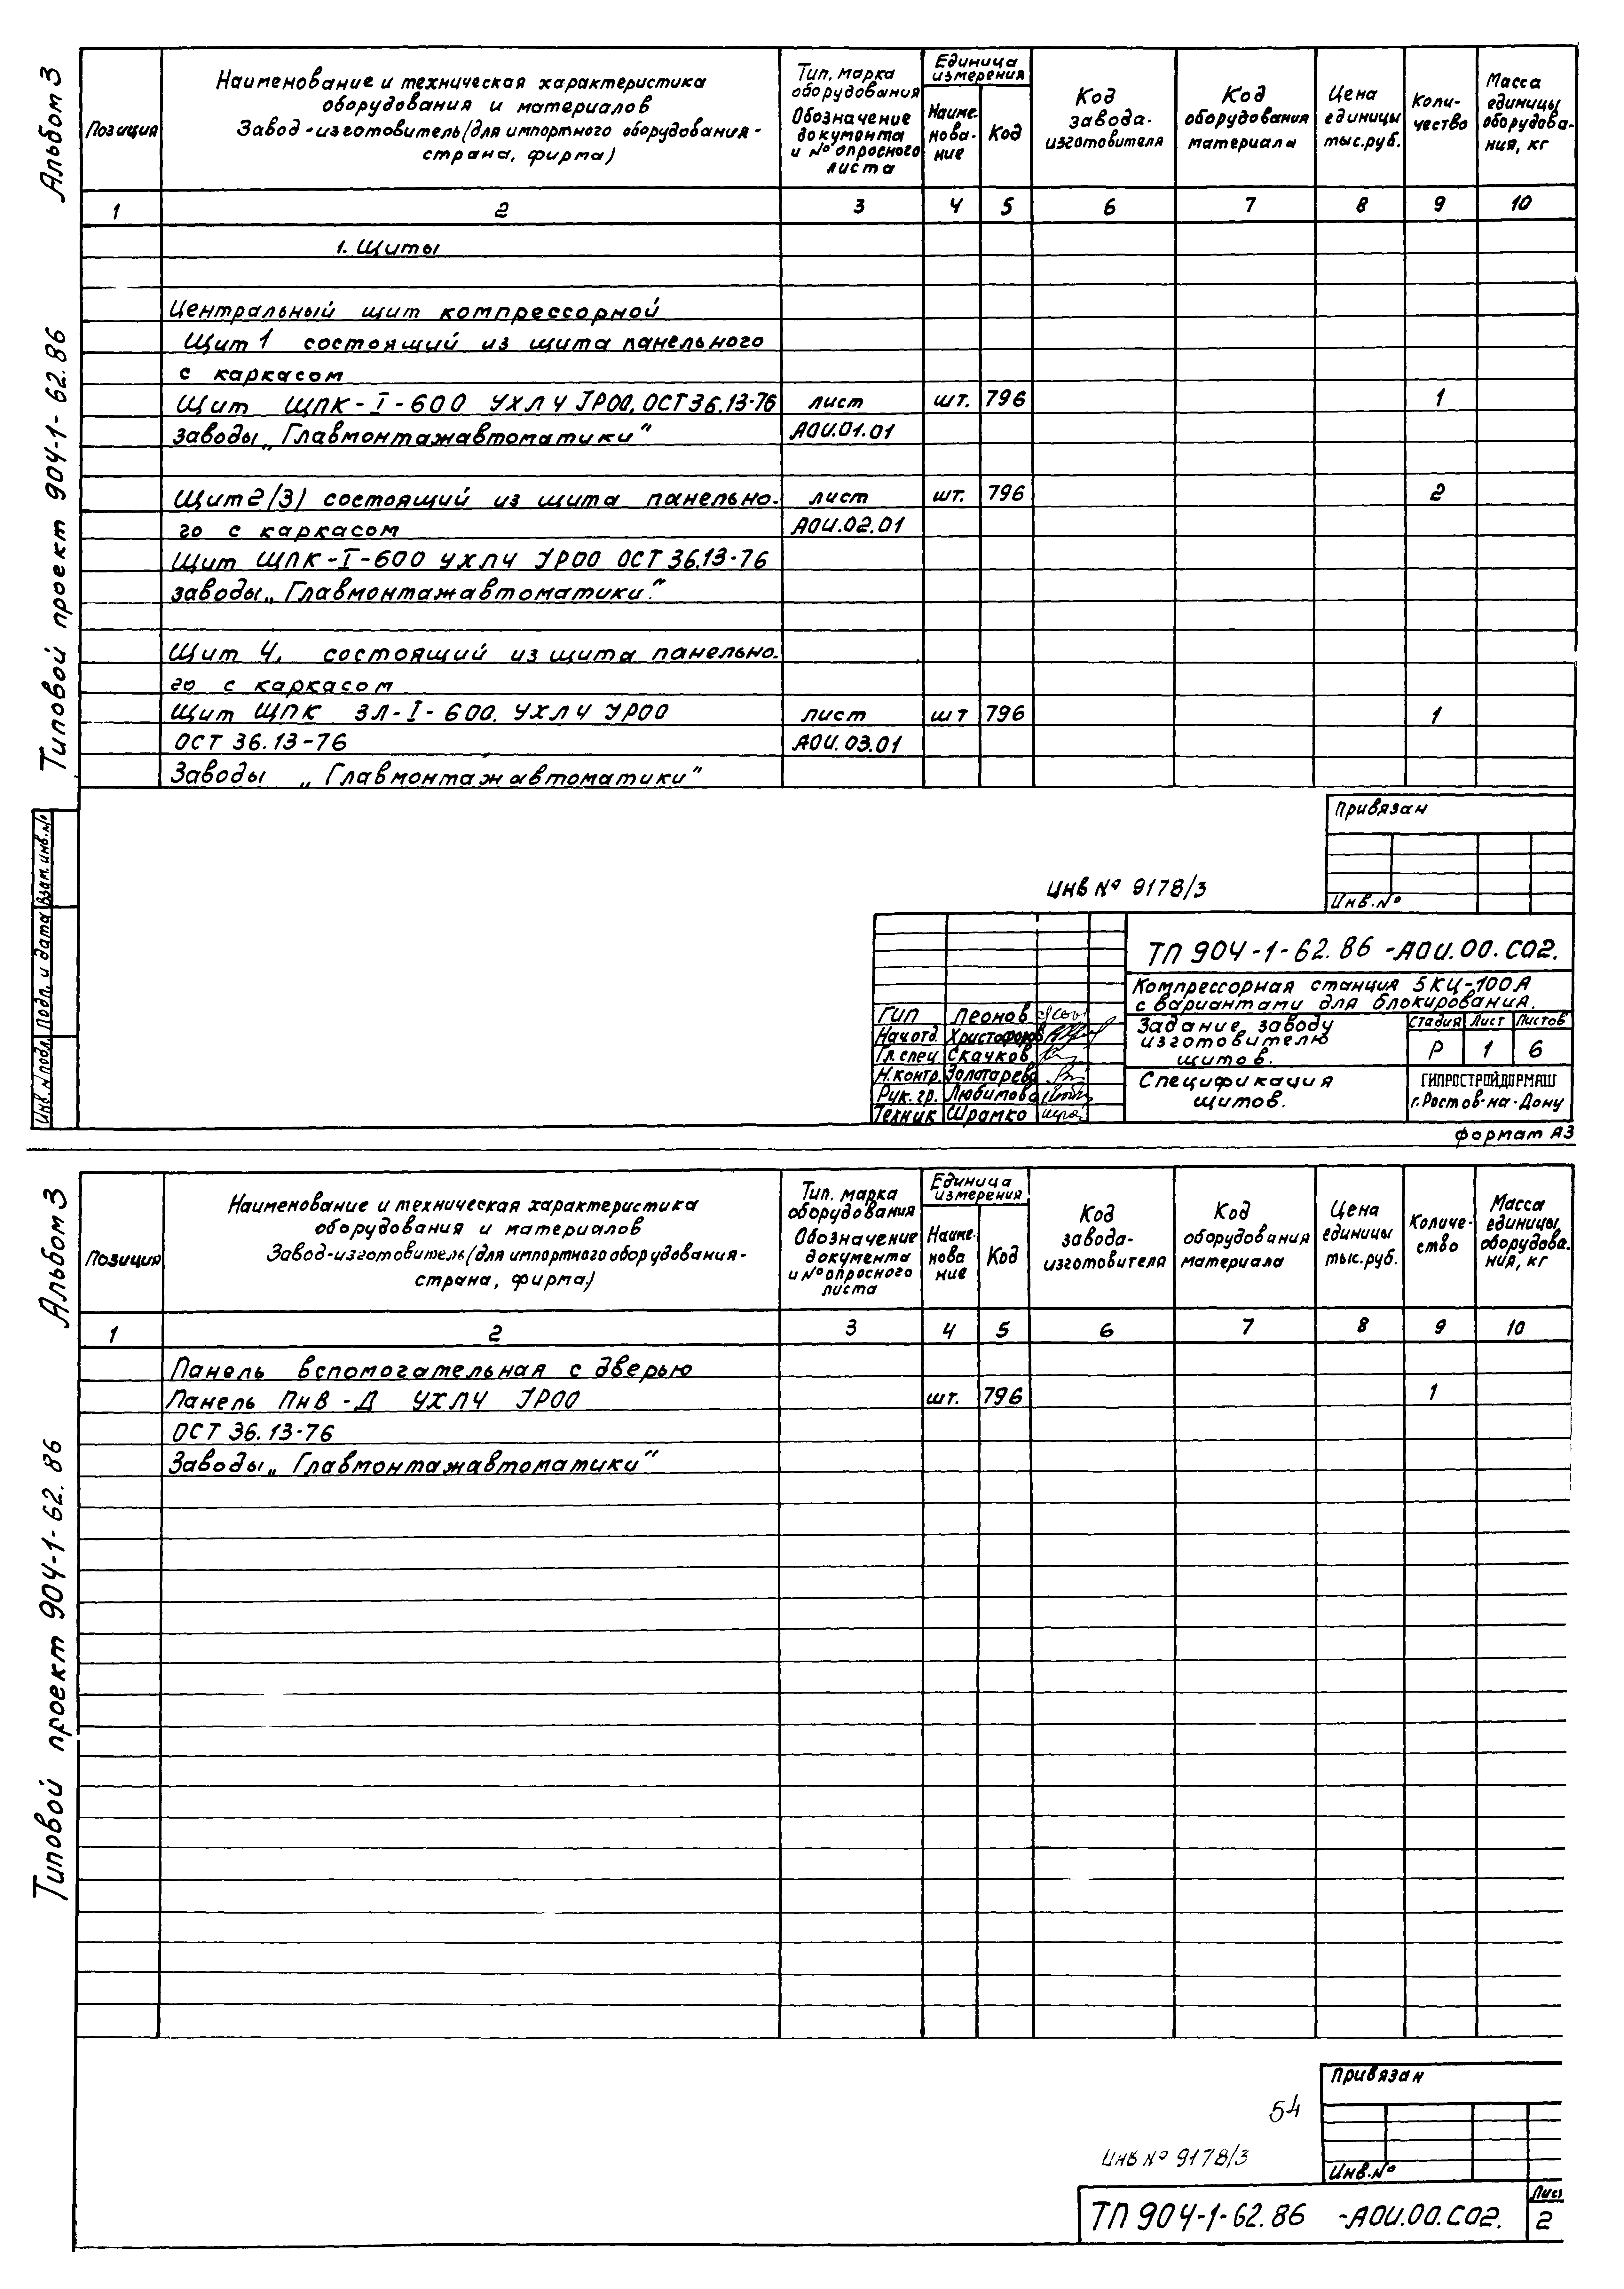 Альбом 3
Типовой проект 904-1-62.86
Позиция
Наименование и техническая характеристика
оборудования и материалов
Завод-изготовитель (для импортного оборудования-
страна, фирма)
Тип, марка
оборудования
Обозначение
документа
и № опросного
листа
Единица
измерения
Наиме-
нова-
ние
Код
Код
завода-
изготовителя
Код
оборудования
материала
Цена
единицы
тыс.руб.
Коли-
чество
Масса
единицы
оборудова-
ния, кг
1 2 3 4 5 6 7 8 9 10
1. Щиты
Центральный щит компрессорной
Щит 1 состоящий из щита панельного
с каркасом
Щит ЩПК-I-600 УХЛ4 IР00, ОСТ 36.13-76 лист шт. 796 1
заводы „Главмонтажавтоматики" АОИ.01.01
Щит 2/3) состоящий из щита панельно- лист шт. 796 2
го с каркасом АОИ.02.01
Щит ЩПК-I-600 УХЛ4 IР00 ОСТ 36.13-76
заводы „Главмонтажавтоматики."
Щит 4, состоящий из щита панельно-
го с каркасом
Щит ЩПК ЗЛ-I-600. УХЛ4 IР00 лист шт 796 1
ОСТ 36.13-76 АОИ.03.01
Заводы „Главмонтажавтоматики"
Инв. № подл. Подп. и дата Взам. инв. №
Привязан
Инв. №
Инв № 9178/3
ТП 904-1-62.86 -АОИ.00.СО2.
Компрессорная станция 5КЦ-100А
с вариантами для блокирования.
ГИП Леонов
Нач.отд. Христофоров
Гл.спец. Скачков
Н.контр. Золотарева
Рук. гр. Любимова
Техник Шрамко
Задание заводу
изготовителю
щитов.
Стадия Лист Листов
Р 1 6
Спецификация
щитов.
ГИПРОСТРОЙДОРМАШ
г.Ростов-на-Дону
формат А3
Альбом 3
Типовой проект 904-1-62.86
Позиция
Наименование и техническая характеристика
оборудования и материалов
Завод-изготовитель (для импортного оборудования-
страна, фирма)
Тип. марка
оборудования
Обозначение
документа
и № опросного
листа
Единица
измерения
Наиме-
нова
ние
Код
Код
завода-
изготовителя
Код
оборудования
материала
Цена
единицы
тыс.руб.
Количе-
ство
Масса
единицы
оборудова-
ния, кг
1 2 3 4 5 6 7 8 9 10
Панель вспомогательная с дверью
Панель ПнВ-Д УХЛ4 IР00 шт. 796 1
ОСТ 36.13-76
Заводы „Главмонтажавтоматики"
Привязан
Инв. №
54
Инв № 9178/3
ТП 904-1-62.86 -АОИ.00.СО2.
Лист
2